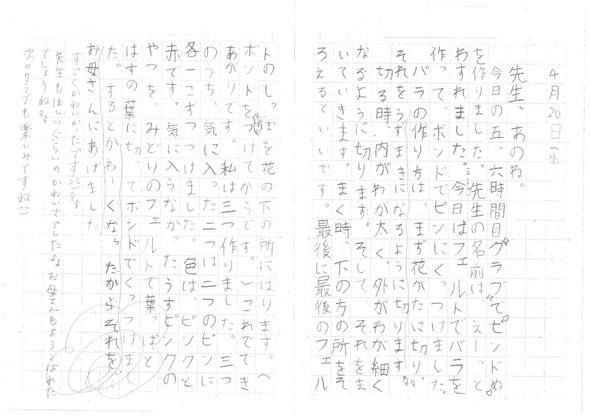 4月20日(水)
先生、あのね。
今日の五、六時間目クラブでピンどめ
を作りました。先生の名前は、えーっと
わすれました。今日はフェルトでバラを
作って、ボンドでピンにくっつけました。
バラの作り方は、まず花がたに切り、
それをうずまきになるように切ります。
切る時、内がわが太く、外がわが細く
なるように切ります。そして、それをま
いていきます。まく時、下の方の所をそ
ろえるといいです。最後に最後のフェル
トのしっぽを花の下の所にはります。(
ボンドをつけてからです。)これででき
あがりです。私は三つ作りました。三つ
のうち、気に入った二つは二つのピンに
各一こずつつけました。色は、ピンクと
赤です。気に入らなかったうすピンクの
やつを、みどりのフェルトで葉っぱと
はすの葉に切ってボンドでくっつけまし
た。するとかわいくなったからそれを
お母さんにあげました。
すごくかわいかったですよ
先生もほしいぐらいのかわいさでしたよ お母さんもよろこばれた
でしょうね
次のクラブも楽しみですね